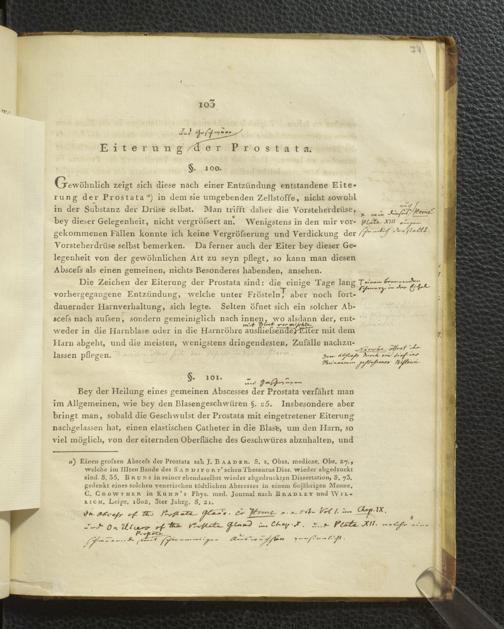 103
Eiterung der Prostata.
§. 100.
Gewöhnlich zeigt sich diese nach einer Entzündung entstandene Eite-
rung der Prostata a) in dem sie umgebenden Zellstoffe, nicht sowohl
in der Substanz der Drüse selbst. Man trifft daher die Vorsteherdrüse,
bey dieser Gelegenheit, nicht vergrößert an. Wenigstens in den mir vor-
gekommenen Fällen konnte ich keine Vergrößerung und Verdickung der
Vorsteherdrüse selbst bemerken. Da ferner auch der Eiter bey dieser Ge-
legenheit von der gewöhnlichen Art zu seyn pflegt, so kann man diesen
Abscess als einen gemeinen, nichts Besonderes habenden, ansehen.
Die Zeichen der Eiterung der Prostata sind: die einige Tage lang
vorhergegangene Entzündung, welche unter Frösteln, aber noch fort-
dauernder Harnverhaltung, sich legte. Selten öfnet sich ein solcher Ab-
scess nach außen, sondern gemeiniglich nach innen, wo alsdann der, ent-
weder in die Harnblase oder in die Harnröhre ausfließende Eiter mit dem
Harn abgeht, und die meisten, wenigstens dringendesten, Zufälle nachzu-
lassen pflegen.
§. 101.
Bey der Heilung eines gemeinen Abscesses der Prostata verfährt man
im Allgemeinen, wie bey den Blasengeschwüren §. 25. Insbesondere aber
bringt man, sobald die Geschwulst der Prostata mit eingetretener Eiterung
nachgelassen hat, einen elastischen Catheter in die Blase, um den Harn, so
viel möglich, von der eiternden Oberfläche des Geschwüres abzuhalten, und
a) Einen großen Abscess der Prostata sah J. BAADER. S. s. Obs. medicae. Obs. 27.,
welche im IIIten Bande des SANDIFORT'schen Thesaurus Diss. wieder abgedruckt
sind. S. 35, BRUNS in seiner ebendaselbst wieder abgedruckten Dissertation, S. 73,
gedenkt eines solchen venerischen tödtlichen Abscesses in einem 60jährigen Manne,
C. CROWTHER in KÜHN's Phys. med. Journal nach BRADLEY und WIL-
LICH, Leipz. 1802, 3ter Jahrg. S. 21.
On Abscess of the Prostate Gland. Home Vol I. im Chap. IX.
und On Ulcers of the Prostate Gland im Chap. X. Plate XII.